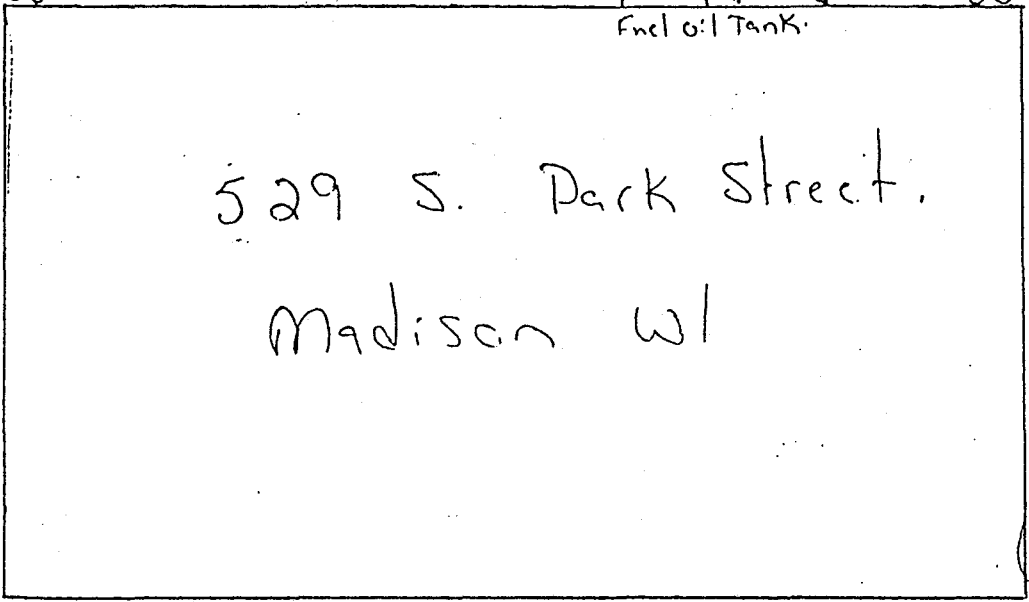 Fuel oil Tank.
529 S. Park Street.
Madison WI